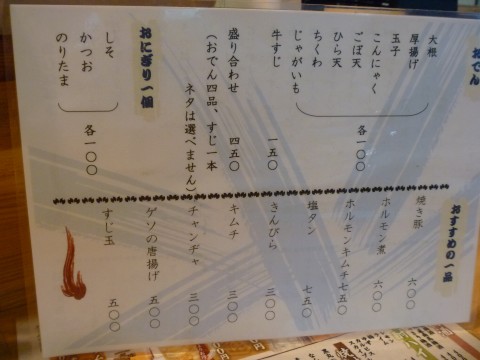 おでん
大根
厚揚げ
玉子
こんにゃく
ごぼ天
ひら天
ちくわ
じゃがいも
各一〇〇
牛すじ 一五〇
盛り合わせ 四五〇
(おでん四品、すじ一本
ネタは選べません)
おにぎり一個
しそ
かつお
のりたま
各一〇〇
おすすめの一品
焼き豚 六〇〇
ホルモン煮 六〇〇
ホルモンキムチ七五〇
塩タン 七五〇
きんぴら 三〇〇
キムチ 三〇〇
チャンヂャ 三〇〇
ゲソの唐揚げ 五〇〇
すじ玉 五〇〇